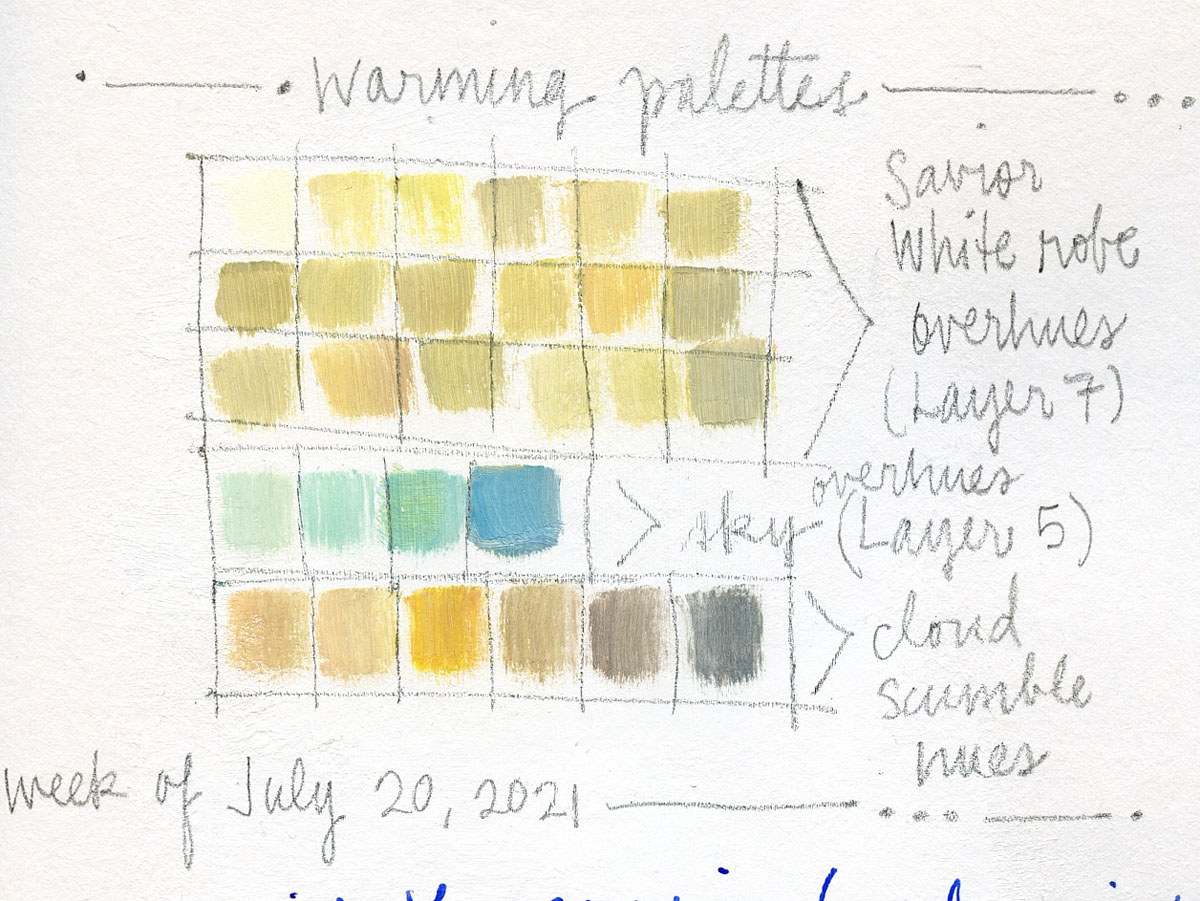 Warming palettes
Savior
White robe
overhues
(Layer 7)
overhues
sky (Layer 5)
cloud
scumble
hues
week of July 20, 2021